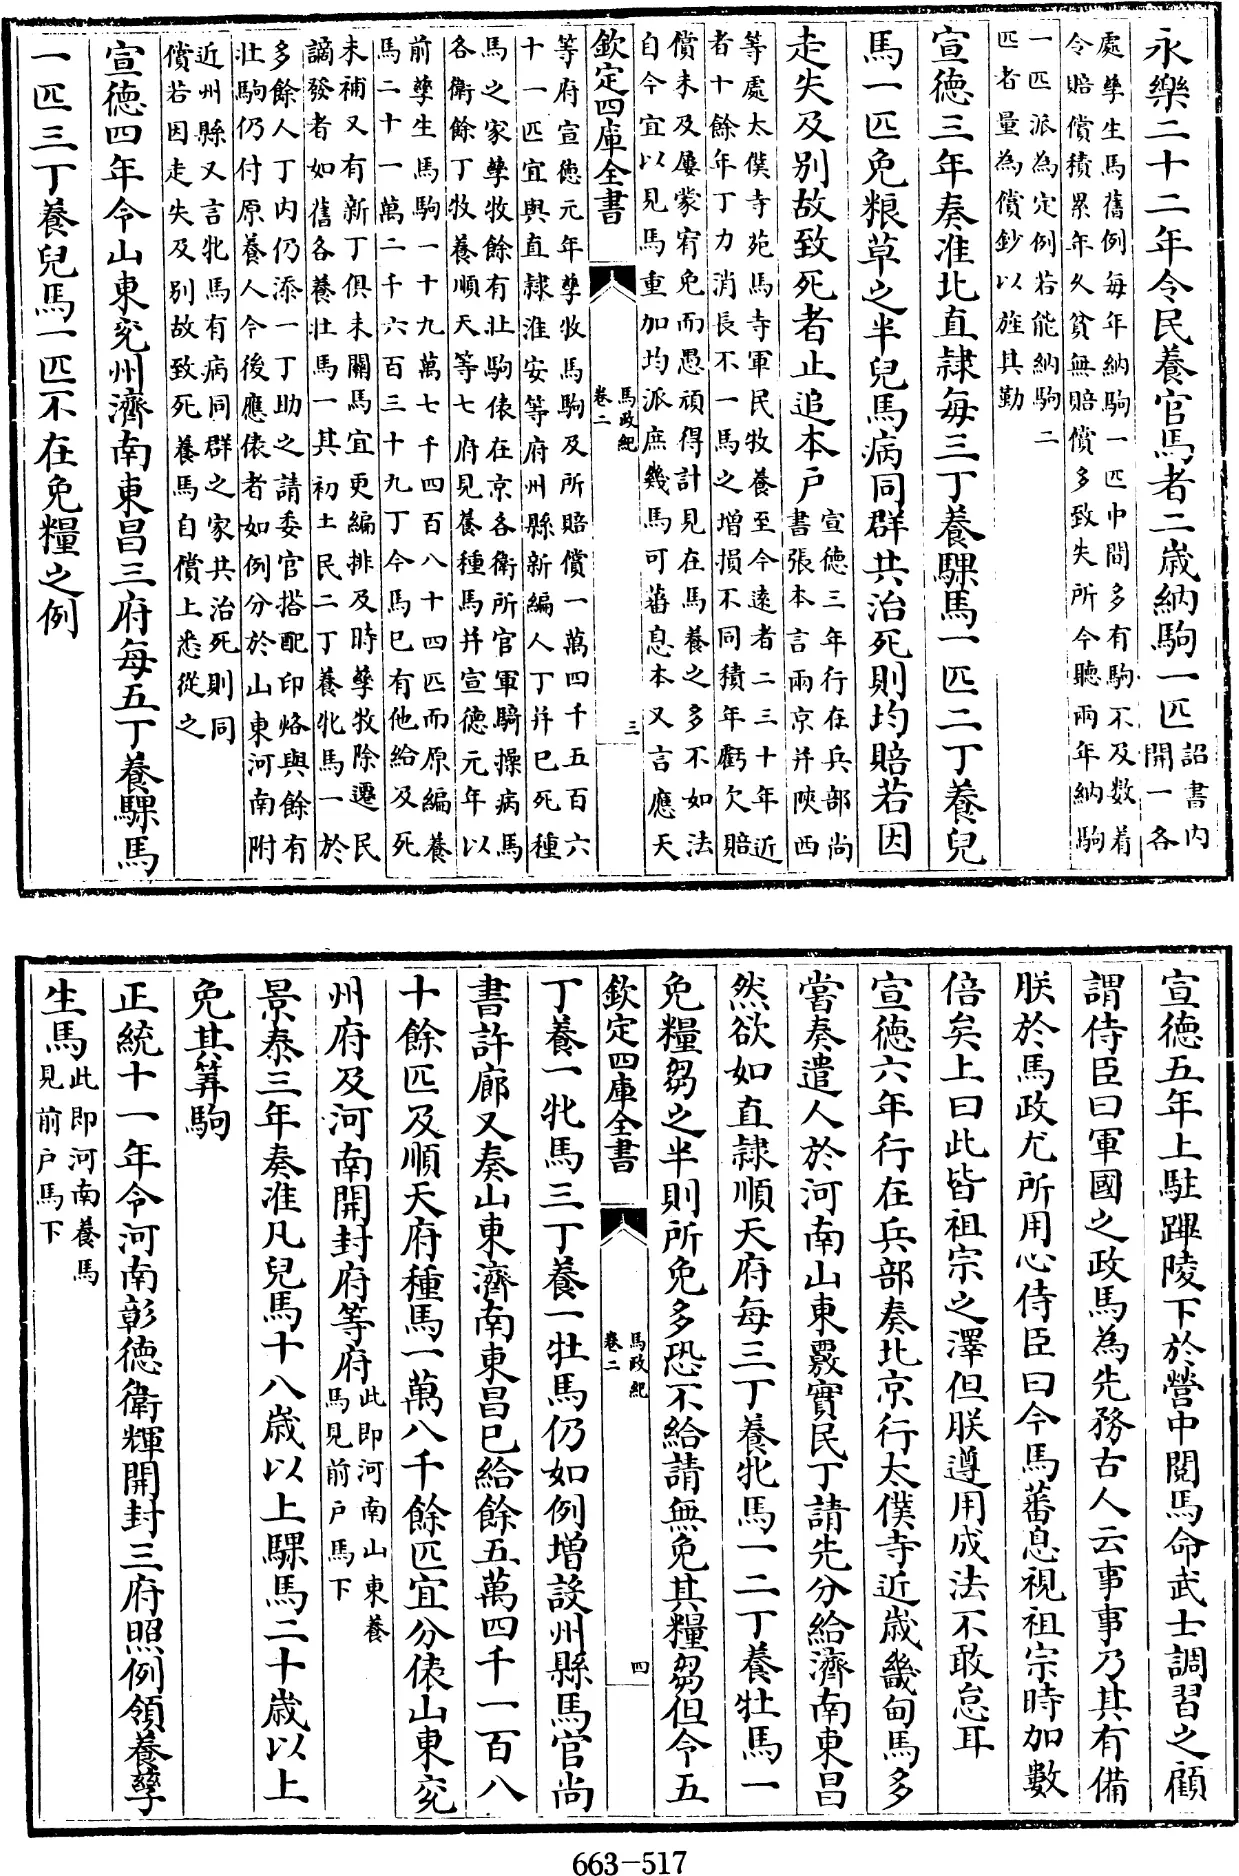 永樂二十二年令民養官馬者二歲納駒一匹
詔書内
開一各
處孳生馬舊例每年納駒一匹中間多有駒不及數着
令賠償積累年久貧無賠償多致失所今聽兩年納駒
一匹派為定例若能納駒二
匹者量為償鈔以旌其勤
宣德三年奏准北直隷每三丁養騍馬一匹二丁養兒
馬一匹免粮草之半兒馬病同群共治死則均賠若因
走失及别故致死者止追本户
宣德三年行在兵部尚
書張本言兩京并陝西
等處太僕寺苑馬寺軍民牧養至今遠者二三十年近
者十餘年丁力消長不一馬之增損不同積年虧欠賠
償未及屢蒙宥免而愚頑得計見在馬養之多不如法
自今宜以見馬重加均派庶幾馬可蕃息本又言應天
欽定四庫全書
馬政紀
卷二
三
等府宣德元年孳牧馬駒及所賠償一萬四千五百六
十一匹宜與直隷淮安等府州縣新編人丁并已死種
馬之家孳牧餘有壯駒俵在京各衛所官軍騎操病馬
各衛餘丁牧養順天等七府見養種馬并宣德元年以
前孳生馬駒一十九萬七千四百八十四匹而原編養
馬二十一萬二千六百三十九丁今馬已有他給及死
未補又有新丁俱未關馬宜更編排及時孳牧除遷民
謫發者如舊各養壯馬一其初土民二丁養牝馬一於
多餘人丁内仍添一丁助之請委官搭配印烙與餘有
壯駒仍付原養人今後應俵者如例分於山東河南附
近州縣又言牝馬有病同群之家共治死則同
償若因走失及别故致死養馬自償上悉從之
宣德四年令山東兖州濟南東昌三府每五丁養騍馬
一匹三丁養兒馬一匹不在免糧之例
宣德五年上駐蹕陵下於營中閲馬命武士調習之顧
謂侍臣曰軍國之政馬為先務古人云事事乃其有備
朕於馬政尤所用心侍臣曰今馬蕃息視祖宗時加數
倍矣上曰此皆祖宗之澤但朕遵用成法不敢怠耳
宣德六年行在兵部奏北京行太僕寺近歳畿甸馬多
嘗奏遣人於河南山東覈實民丁請先分給濟南東昌
然欲如直隷順天府每三丁養牝馬一二丁養牡馬一
免糧芻之半則所免多恐不給請無免其糧芻但令五
欽定四庫全書
馬政紀
卷二
四
丁養一牝馬三丁養一牡馬仍如例增設州縣馬官尚
書許廓又奏山東濟南東昌已給餘五萬四千一百八
十餘匹及順天府種馬一萬八千餘匹宜分俵山東兖
州府及河南開封府等府
此即河南山東養
馬見前户馬下
景泰三年奏准凡兒馬十八歳以上騍馬二十歳以上
免其筭駒
正統十一年令河南彰德衛輝開封三府照例領養孳
生馬
此即河南養馬
見前户馬下
663-517